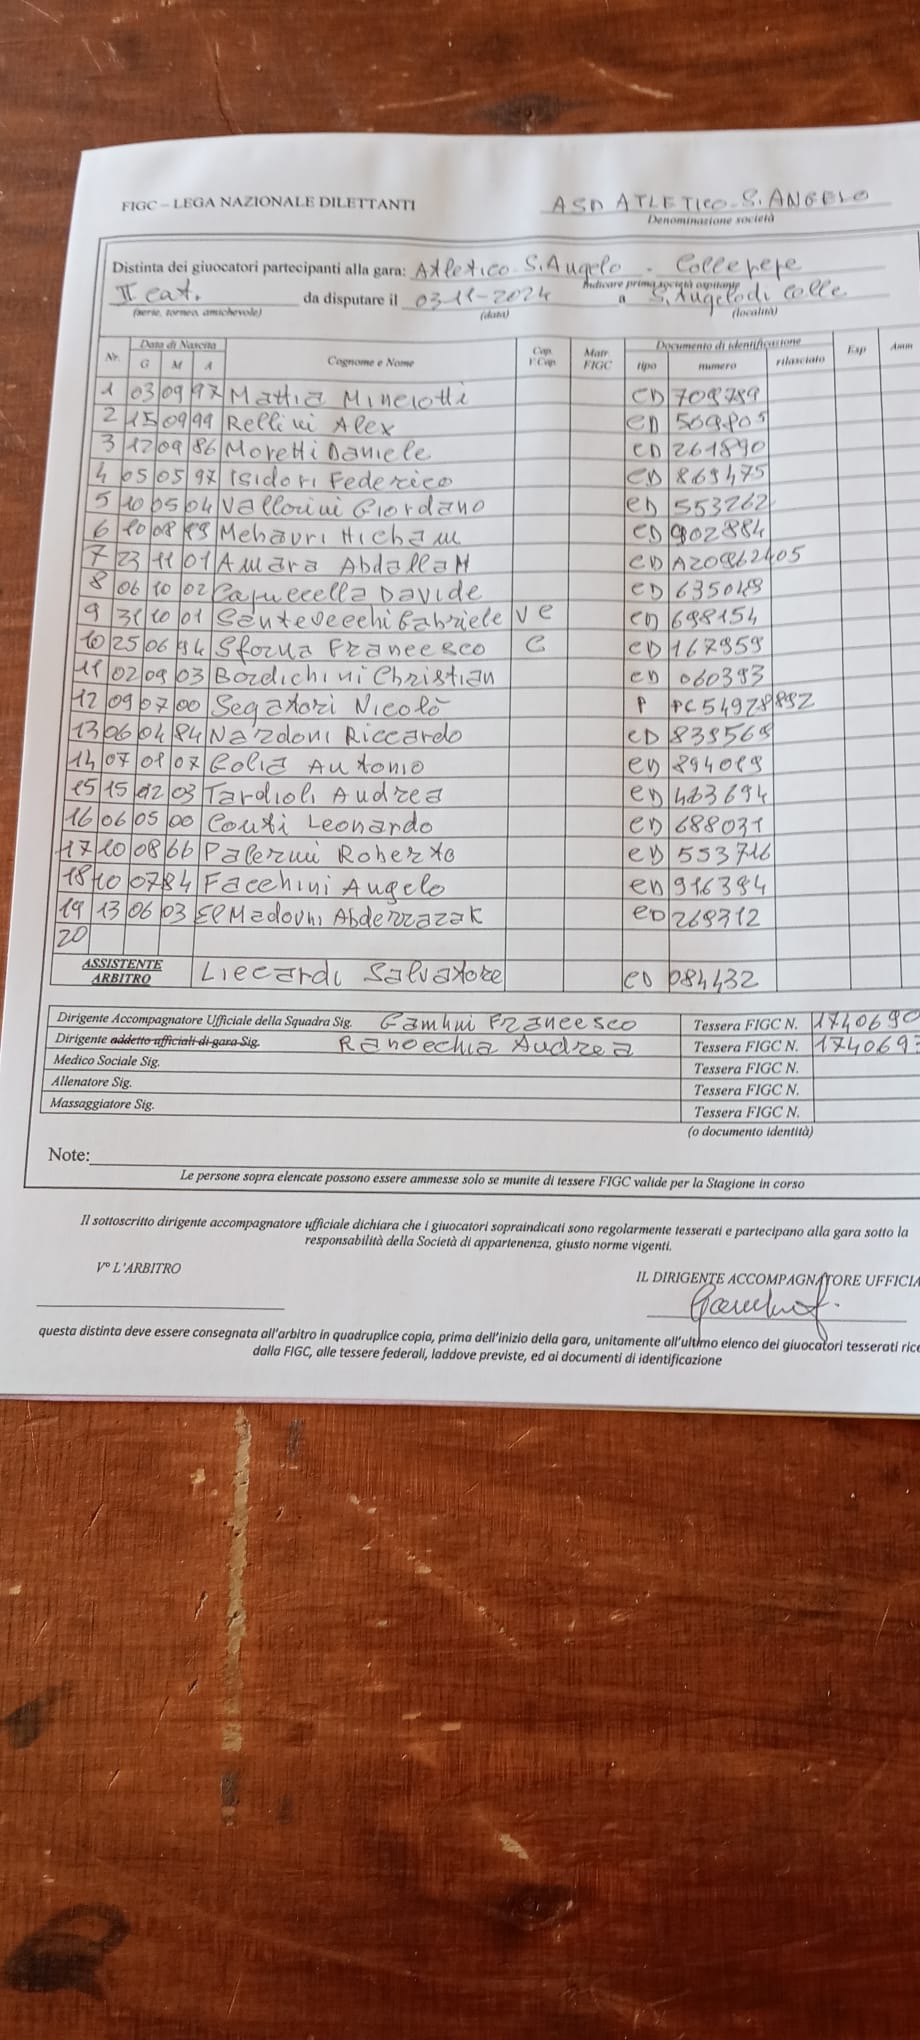 FIGC – LEGA NAZIONALE DILETTANTI ASD ATLETICO S. ANGELO
Denominazione società
Distinta dei giuocatori partecipanti alla gara: Atletico S. Angelo - Collepepe
Indicare prima società ospitante
II cat. da disputare il 03-11-2024 a S. Angelo di Colle
(serie, torneo, amichevole) (data) (località)
Nr. Data di Nascita Cognome e Nome Cap. V.Cap. Matr. FIGC Documento di identificazione Esp Amm
G M A tipo numero rilasciato
1 03 09 97 Mattia Minciotti CD 709789
2 15 09 99 Rellini Alex CD
3 12 09 86 Moretti Daniele CD 261890
4 05 05 97 Isidori Federico CD 869475
5 10 05 04 Vallorini Giordano CD 553262
6 10 08 Mehauri Hicham CD 902884
7 23 11 01 Amara Abdallah CD
8 06 10 02 Davide CD
9 31 10 01 Gabriele VC CD 698154
10 25 06 94 Sforna Francesco C CD 167959
11 02 09 03 Bordichini Christian CD 060393
12 09 07 00 Segatori Nicolò P
13 06 04 84 Nardoni Riccardo CD 839569
14 07 01 07 Golia Antonio CD
15 15 02 03 Tardioli Andrea CD 463694
16 06 05 00 Conti Leonardo CD 688031
17 10 08 66 Palermi Roberto CD 553716
18 10 07 84 Facchini Angelo CD 916394
19 13 06 03 El Madouni Abderrazak CD 269312
20
ASSISTENTE ARBITRO Liccardi Salvatore CD 084432
Dirigente Accompagnatore Ufficiale della Squadra Sig. Francesco Tessera FIGC N. 1740690
Dirigente addetto ufficiali di gara Sig. Ranocchia Andrea Tessera FIGC N. 174069
Medico Sociale Sig. Tessera FIGC N.
Allenatore Sig. Tessera FIGC N.
Massaggiatore Sig. Tessera FIGC N.
(o documento identità)
Note:
Le persone sopra elencate possono essere ammesse solo se munite di tessere FIGC valide per la Stagione in corso
Il sottoscritto dirigente accompagnatore ufficiale dichiara che i giuocatori sopraindicati sono regolarmente tesserati e partecipano alla gara sotto la
responsabilità della Società di appartenenza, giusto norme vigenti.
V° L'ARBITRO
IL DIRIGENTE ACCOMPAGNATORE UFFICIA
questa distinta deve essere consegnata all'arbitro in quadruplice copia, prima dell'inizio della gara, unitamente all'ultimo elenco dei giuocatori tesserati rice
dalla FIGC, alle tessere federali, laddove previste, ed ai documenti di identificazione